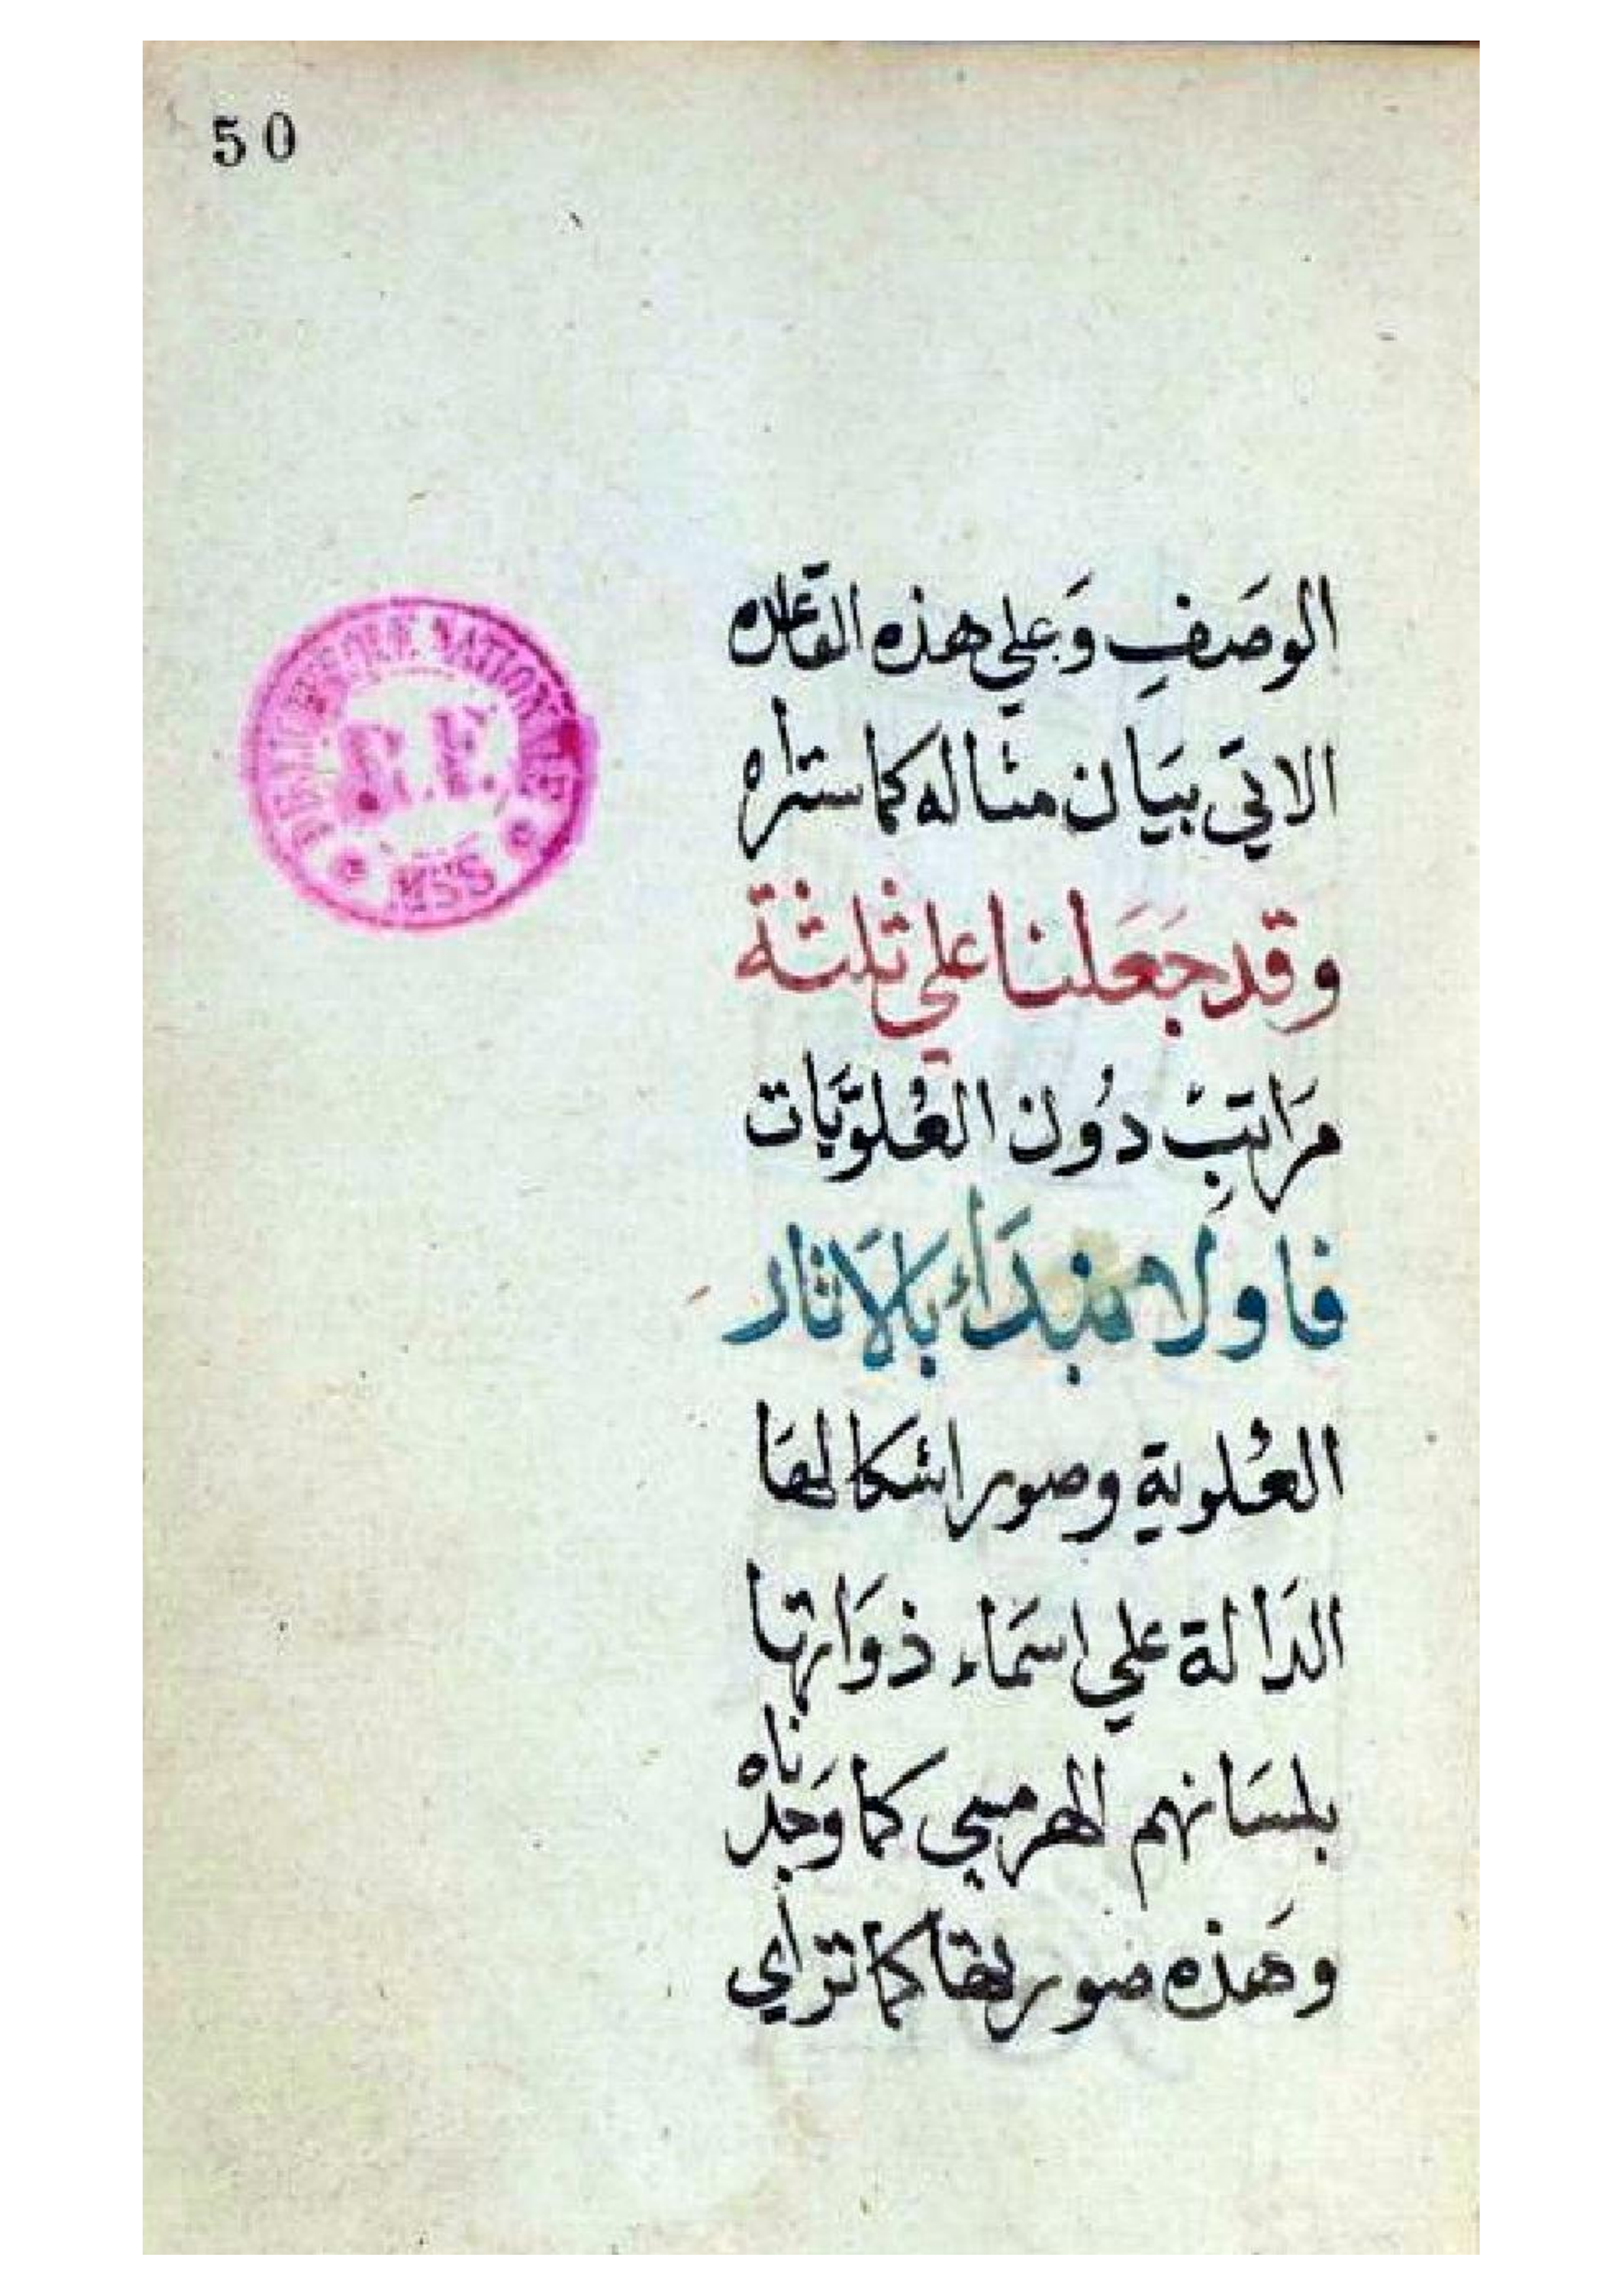 50
الوصَفِ وَعلي هذه القاعده
الاتي بيَان مثاله كما ستراه
وقد جَعَلنا علي ثلثة
مرَاتبِ دُون العُلوَيات
فاولا مبدَاء بالاثار
العُلوية وصور اشكالها
الدَالة علي اسمَاء ذوَاتها
بلسَانهم الهرمسي كما وَجدناه
وهَذه صورتها كما تراي
BIBLIOTHEQUE NATIONALE
R.F.
MSS